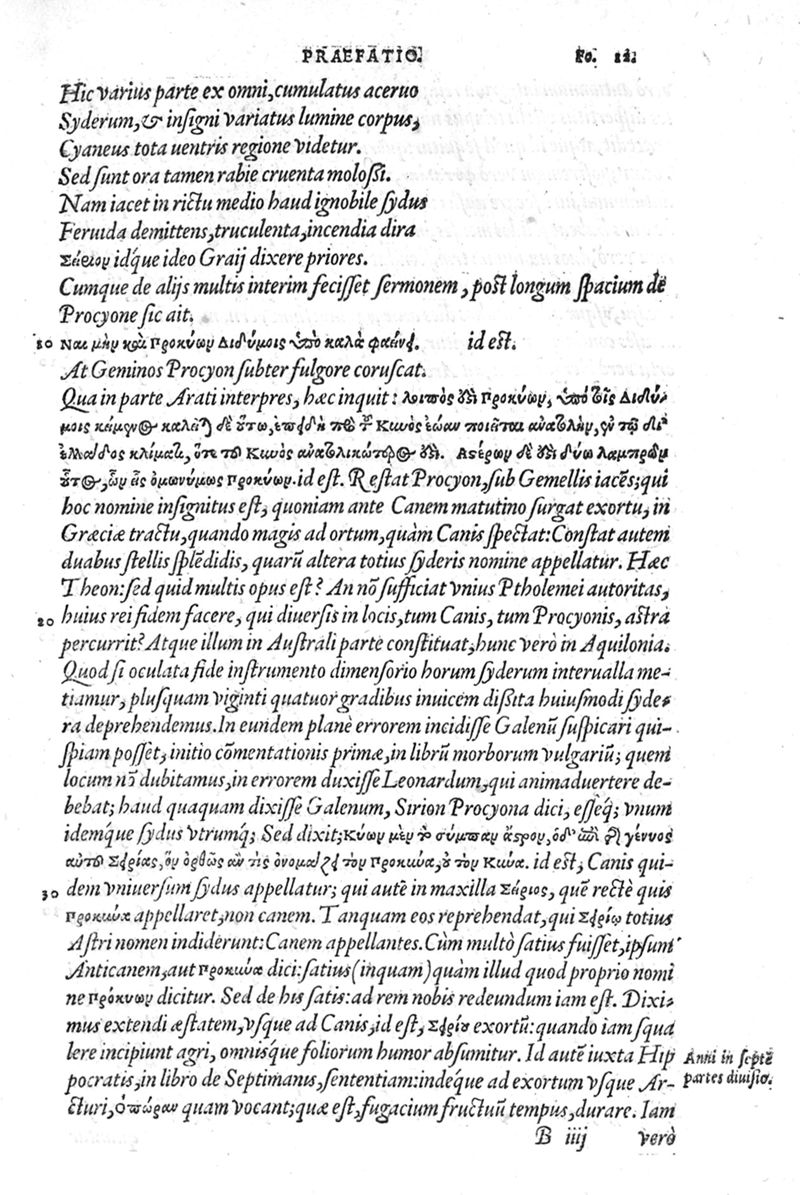 PRAEFATIO. Fo. 12.
Hic varius parte ex omni, cumulatus aceruo
Syderum, & insigni variatus lumine corpus,
Cyaneus tota uentris regione videtur.
Sed sunt ora tamen rabie cruenta molossi.
Nam iacet in rictu medio haud ignobile sydus
Feruida demittens, truculenta, incendia dira
Σείριον idq́ue ideo Graij dixere priores.
Cumque de alijs multis interim fecisset sermonem, post longum spacium de
Procyone sic ait.
10 Ναι μὴν καὶ Προκύων Διδύμοις ὑπὸ καλὰ φαείνει. id est.
At Geminos Procyon subter fulgore coruscat.
Qua in parte Arati interpres, hæc inquit: λοιπὸς ὅδε Προκύων, ὑπὸ τοῖς Διδύ-
μοις κείμενος καλεῖται δὲ οὕτως, ἐπειδὴ πρὸ τοῦ Κυνὸς ἑῴαν ποιεῖται ἀνατολὴν, ἐν τῷ διὰ
ἑλλάδος κλίματι, ὅτε τοῦ Κυνὸς ἀνατολικώτερος ὅδε. Αστέρων δὲ ὅδε δύω λαμπρῶν
οὗτος, ὧν εἷς ὁμωνύμως Προκύων. id est. Restat Procyon, sub Gemellis iacẽs; qui
hoc nomine insignitus est, quoniam ante Canem matutino surgat exortu, in
Græciæ tractu, quando magis ad ortum, quàm Canis spectat: Constat autem
duabus stellis splẽdidis, quarũ altera totius syderis nomine appellatur. Hæc
Theon: sed quid multis opus est? An nõ sufficiat vnius Ptholemei autoritas,
20 huius rei fidem facere, qui diuersis in locis, tum Canis, tum Procyonis, astra
percurrit? Atque illum in Australi parte constituat, hunc verò in Aquilonia.
Quod si oculata fide instrumento dimensorio horum syderum interualla me-
tiamur, plusquam viginti quatuor gradibus inuicem dißita huiusmodi syde-
ra deprehendemus. In eundem planè errorem incidisse Galenũ suspicari qui-
spiam posset, initio cõmentationis primæ, in librũ morborum vulgariũ; quem
locum nõ dubitamus, in errorem duxisse Leonardum, qui animaduertere de-
bebat; haud quaquam dixisse Galenum, Sirion Procyona dici, esseq́; vnum
idemque sydus vtrumq́; Sed dixit; Κύων μὲν τὸ σύμπαν ἄστρον, ὁ δ' ἐπὶ τῆς γέννος
αὐτοῦ Σείριος, ὃν ὀρθῶς ἄν τις ὀνομάζει τὸν Προκύνα, οὐ τὸν Κύνα. id est; Canis qui-
30 dem vniuersum sydus appellatur; qui autẽ in maxilla Σείριος, quẽ rectè quis
Προκύνα appellaret, non canem. Tanquam eos reprehendat, qui Σείριον totius
Astri nomen indiderunt: Canem appellantes. Cùm multò satius fuisset, ipsum
Anticanem, aut Προκύνα dici: satius (inquam) quàm illud quod proprio nomi
ne Πρόκυων dicitur. Sed de his satis: ad rem nobis redeundum iam est. Dixi-
mus extendi æstatem, vsque ad Canis, id est, Σείριου exortũ: quando iam squa
lere incipiunt agri, omnisq́ue foliorum humor absumitur. Id autẽ iuxta Hip
pocratis, in libro de Septimanis, sententiam: indeq́ue ad exortum vsque Ar-
cturi, Ὀπώραν quam vocant; quæ est, fugacium fructuũ tempus, durare. Iam
Anni in septẽ
partes diuisio.
B iiij verò